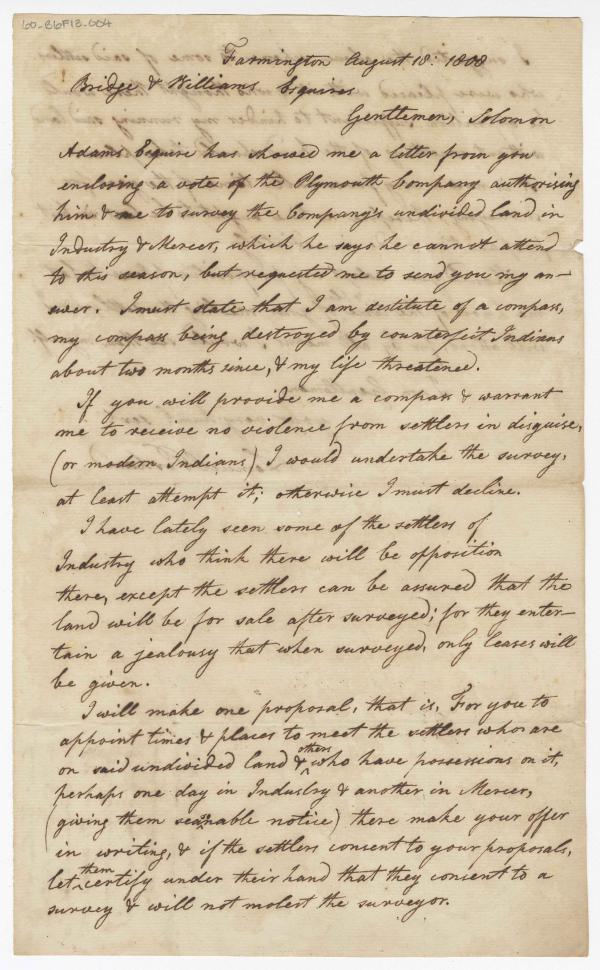 60-B6F13-004
Farmington August 18: 1808
Bridge & Williams Esquires
Gentlemen, Solomon
Adams Esquire has showed me a letter from you
enclosing a vote of the Plymouth Company authorising
him & me to survey the Company's undivided land in
Industry & Mercer, which he says he cannot attend
to this season, but requested me to send you my an-
swer. I must state that I am destitute of a compass,
my compass being destroyed by counterfeit Indians
about two months since, & my life threatened.
If you will provide me a compass & warrant
me to receive no violence from settlers in disguise,
(or modern Indians) I would undertake the survey,
at least attempt it; otherwise I must decline.
I have lately seen some of the settlers of
Industry who think there will be opposition
there, except the settlers can be assured that the
land will be for sale after surveyed; for they enter-
tain a jealousy that when surveyed, only leases will
be given.
I will make one proposal, that is, For you to
appoint times & places to meet the settlers who are
on said undivided land & others who have possessions on it,
perhaps one day in Industry & another in Mercer,
(giving them seasonable notice) there make your offer
in writing, & if the settlers consent to your proposals,
let them certify under their hand that they consent to a
survey & will not molest the surveyor.